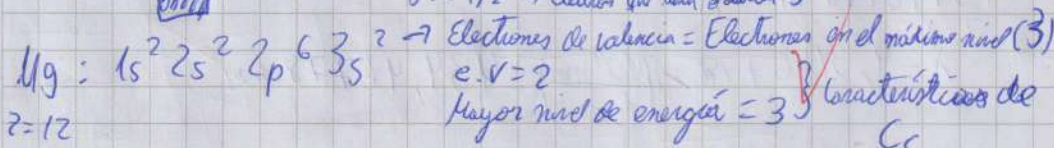 Mg : 1s² 2s² 2p⁶ 3s² → Electrones de valencia = Electrones en el máximo nivel (3)
e.v = 2
Mayor nivel de energía = 3 } Características de
z=12